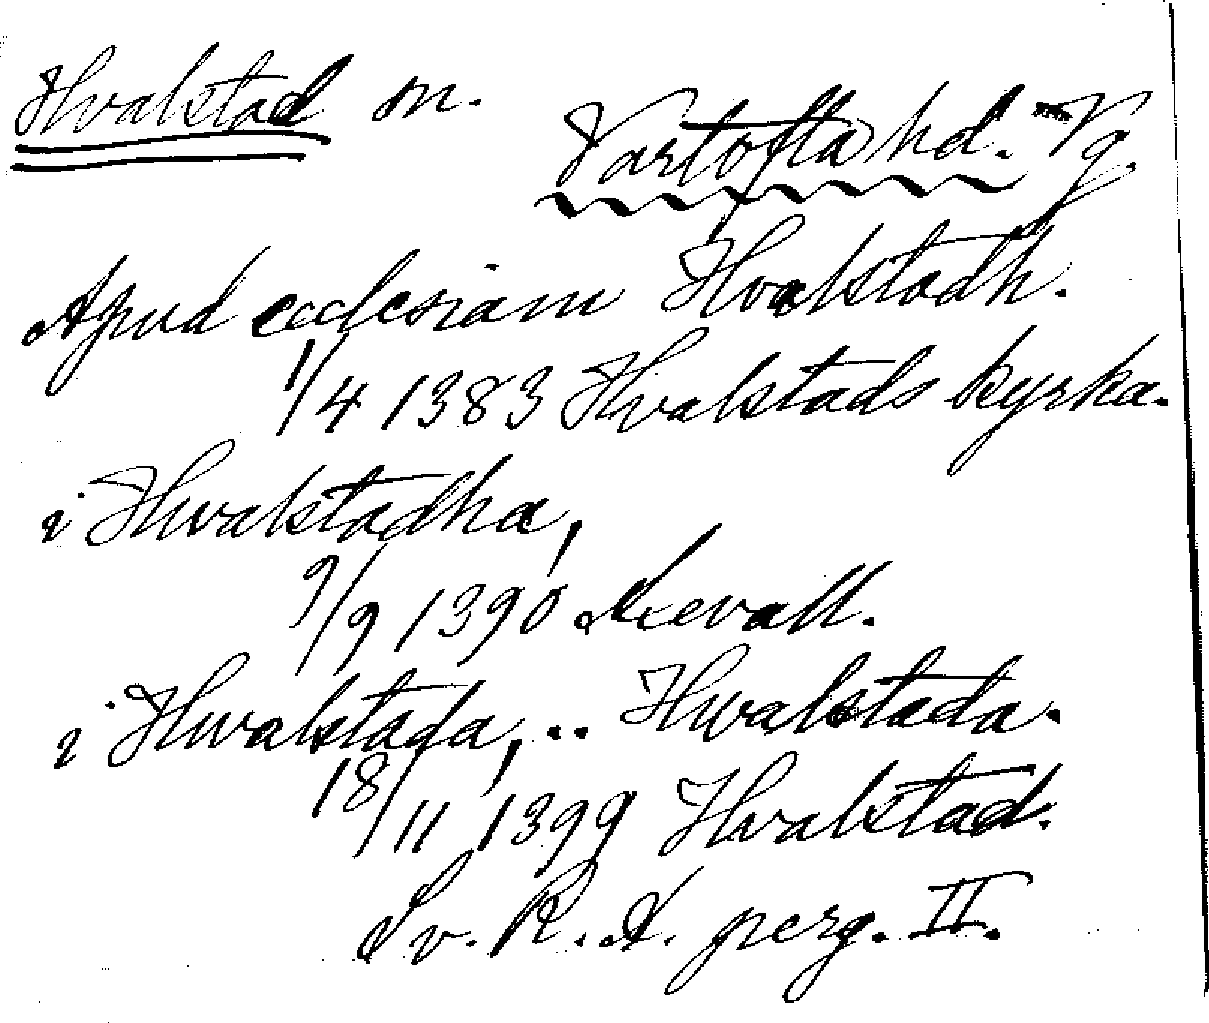 Hvalstad sn.
Vartofta hd. Vg.
Apud ecclesiam Hvalstadh.
1/4 1383 Hvalstads kyrka.
i Hwalstadha,
9/9 1390 Axevall.
i Hwalstada, .. Hwalstada.
18/11 1399 Hvalstad.
Sv. R. A. perg. II.